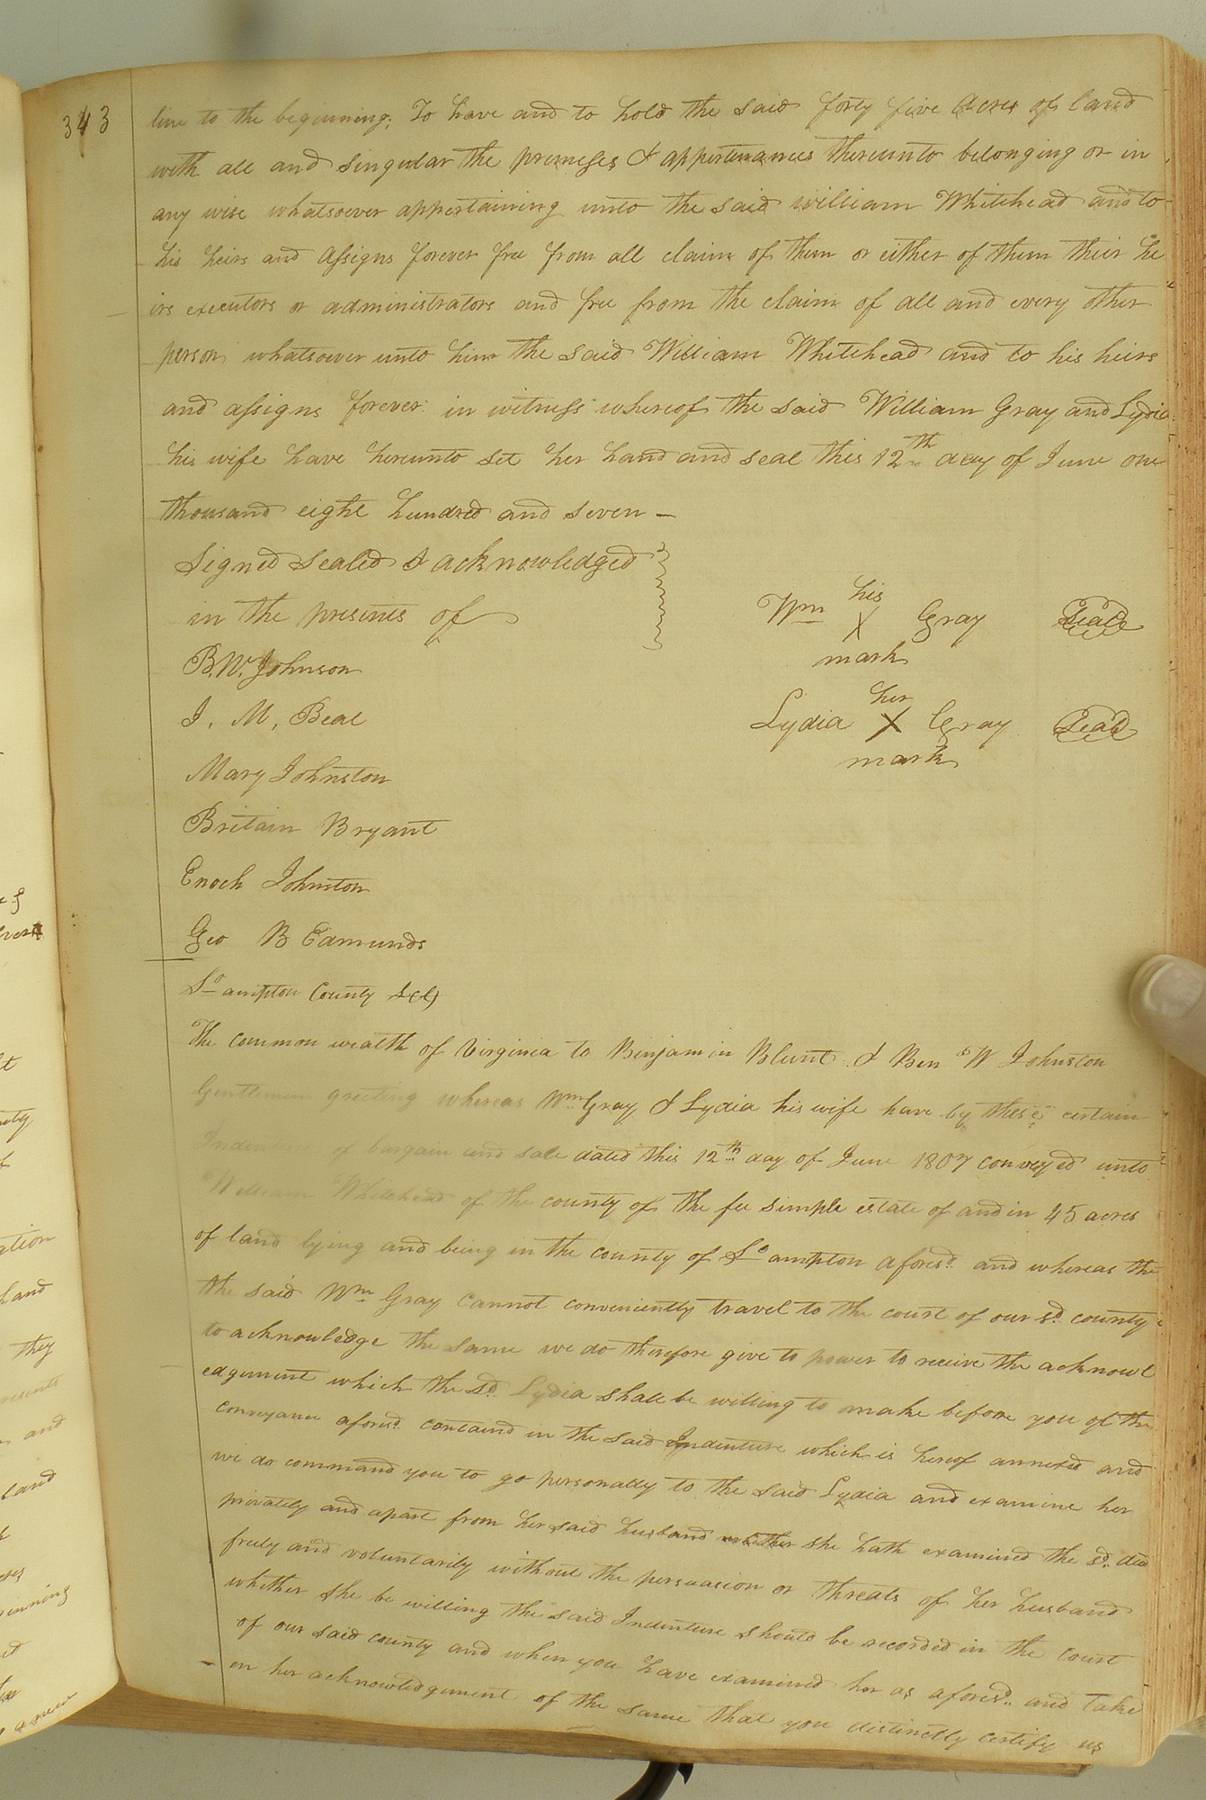 343
line to the beginning; To have and to hold the said forty five acres of land
with all and singular the premeses & appertenances thereunto belonging or in
any wise whatsoever appertaining unto the said william Whitehead and to
his heirs and assigns forever free from all claim of them or either of them their he
irs executors or administrators and free from the claim of all and every other
person whatsoever unto him the said William Whitehead and to his heirs
and assigns forever in witness whereof the said William Gray and Lydia
his wife have hereunto set her hand and seal this 12th day of June one
thousand eight hundred and seven —
Signed Sealed & acknowledged
in the presents of
Wm his X mark Gray Seal
B.W. Johnson
J. M. Beal
Lydia her X mark Gray Seal
Mary Johnston
Britain Bryant
Enoch Johnston
Geo B Edmunds
So ampton County Sct
The common wealth of Virginia to Binjamin Blunt & Ben W Johnston
Gentlemen greeting whereas Wm Gray & Lydia his wife have by these certain
Indenture of bargain and sale dated this 12th day of June 1807 conveyed unto
William Whitehead of the county of the fee simple estate of and in 45 acres
of land lying and being in the county of So ampton aforesd. and whereas the
the said Wm Gray cannot conveniently travel to the court of our sd. county
to acknowledge the same we do therefore give to power to receive the acknowl
edgement which the sd. Lydia shall be willing to make before you of the
conveyance aforesd. containd in the said Indenture which is hereof annexed and
we do command you to go personally to the said Lydia and examine her
privately and apart from her said husband whether she hath examined the sd. deed
freely and voluntarily without the persuasion or threats of her husband
whether she be willing the said Indenture should be recorded in the court
of our said county and when you have examined her as aforesd. and take
en her acknowledgement of the same that you distinctly certify us